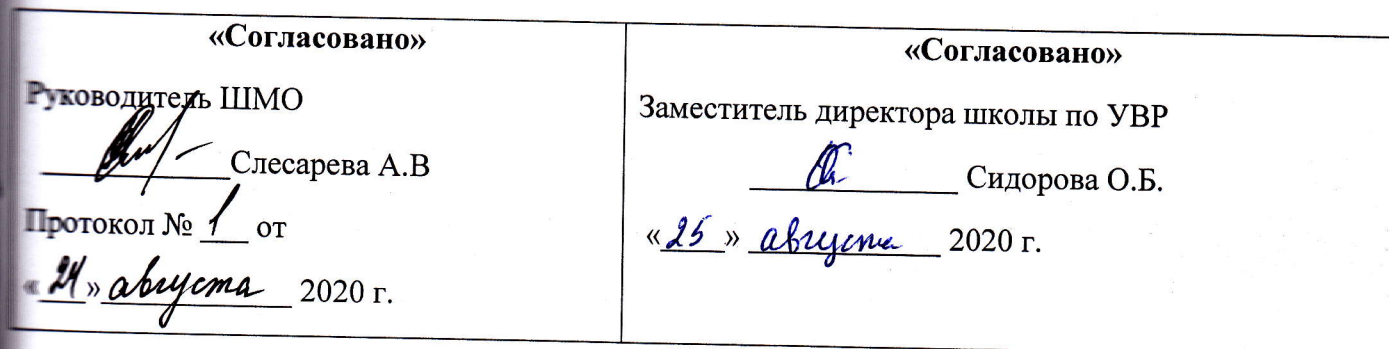 «Согласовано»
Руководитель ШМО
Слесарева А.В
Протокол № 1 от
«24» августа 2020 г.
«Согласовано»
Заместитель директора школы по УВР
Сидорова О.Б.
«25» августа 2020 г.